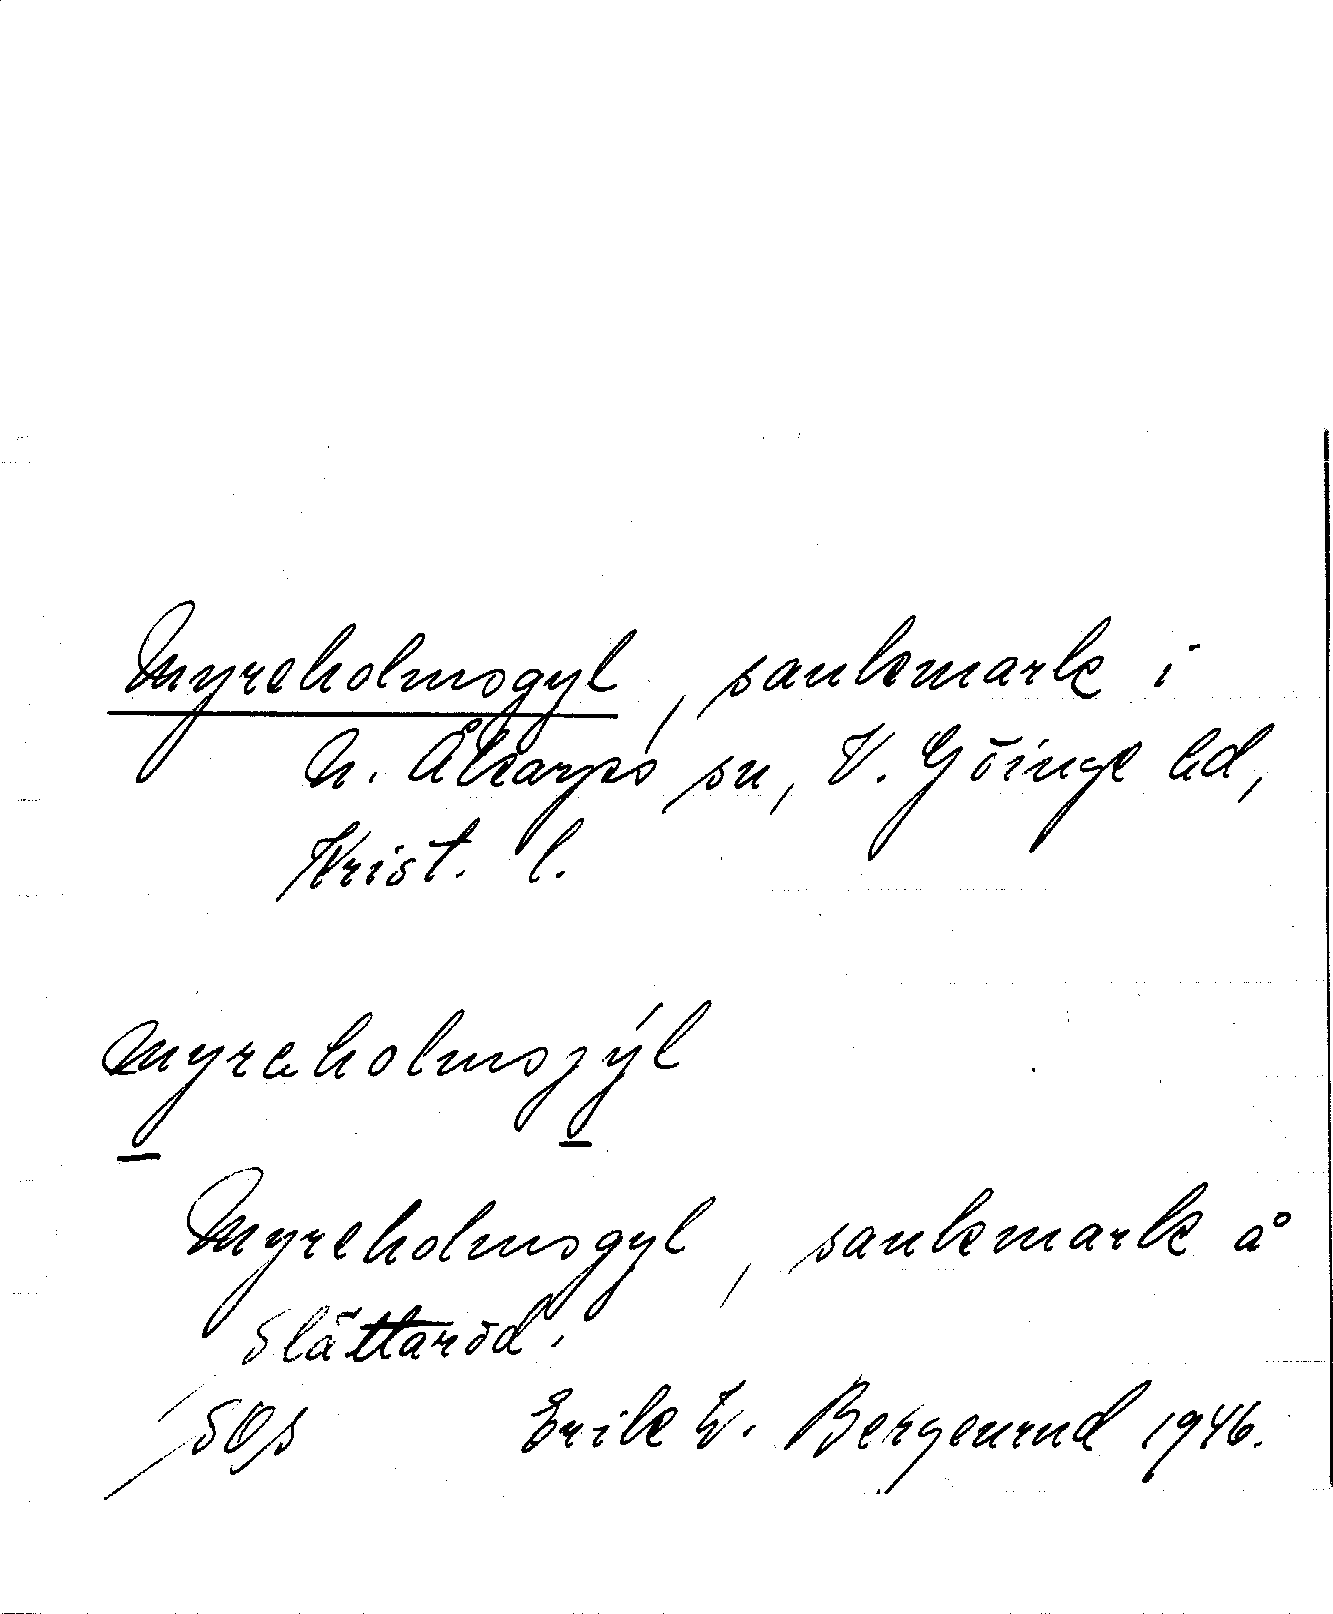 Myreholmsgyl, sankmark i
N. Åkarps sn, V. Göinge hd,
Krist. l.
myrəholmsjýl
Myreholmsgyl, sankmark å
Slättaröd.
SOs Erik W. Bergenrud 1946.